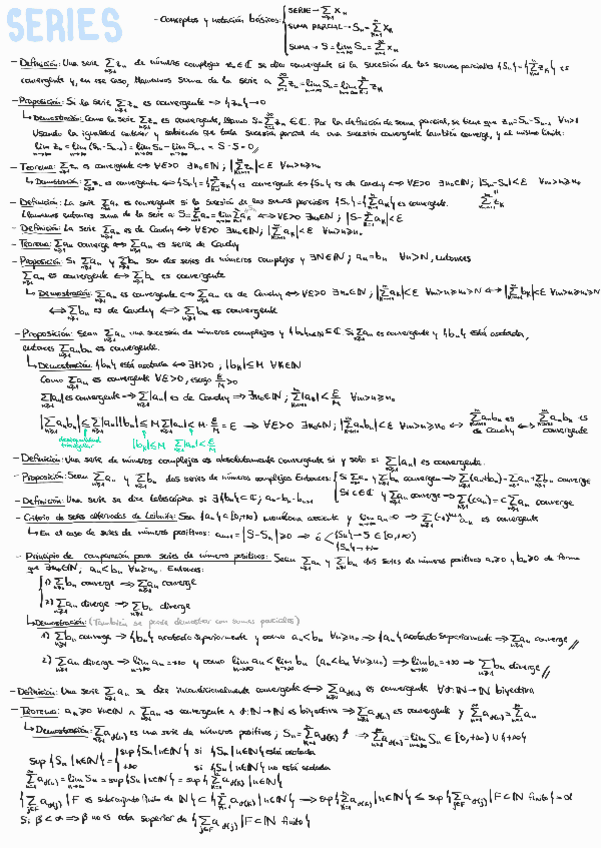 SERIES
- Conceptos y notación básicos: { SERIE → ∑_{n≥1} x_n
SUMA PARCIAL → S_n = ∑_{k=1}^{n} x_k
SUMA → S = lim_{n→∞} S_n = ∑_{n=1}^{∞} x_n
- Definición: Una serie ∑_{n≥1} z_n de números complejos z_n ∈ ℂ se dice convergente si la sucesión de las sumas parciales {S_n} = {∑_{k=1}^{n} z_k} es
convergente y, en ese caso, llamamos suma de la serie a ∑_{n=1}^{∞} z_n = lim_{n→∞} S_n = lim_{n→∞} ∑_{k=1}^{n} z_k
- Proposición: Si la serie ∑_{n≥1} z_n es convergente ⇒ {z_n} → 0
↳ Demostración: Como la serie ∑_{n≥1} z_n es convergente, llamo S = ∑_{n=1}^{∞} z_n ∈ ℂ. Por la definición de suma parcial, se tiene que z_n = S_n - S_{n-1} ∀n>1
Usando la igualdad anterior y sabiendo que toda sucesión parcial de una sucesión convergente también converge, y al mismo límite:
lim_{n→∞} z_n = lim_{n→∞} (S_n - S_{n-1}) = lim_{n→∞} S_n - lim_{n→∞} S_{n-1} = S - S = 0 //
- Teorema: ∑_{n≥1} z_n es convergente ⟺ ∀ε>0 ∃n₀∈ℕ; |∑_{k=n+1}^{m} z_k| < ε ∀m>n≥n₀
↳ Demostración: ∑_{n≥1} z_n es convergente ⟺ {S_n} = {∑_{k=1}^{n} z_k} es convergente ⟺ {S_n} es de Cauchy ⟺ ∀ε>0 ∃n₀∈ℕ; |S_m - S_n| < ε ∀m>n≥n₀
∑_{k=n+1}^{m} z_k
- Definición: La serie ∑_{n≥1} a_n es convergente si la sucesión de las sumas parciales {S_n} = {∑_{k=1}^{n} a_k} es convergente.
Llamamos entonces suma de la serie a: S = ∑_{n=1}^{∞} a_n = lim_{n→∞} ∑_{k=1}^{n} a_k ⟺ ∀ε>0 ∃n₀∈ℕ; |S - ∑_{k=1}^{n} a_k| < ε
- Definición: La serie ∑_{n≥1} a_n es de Cauchy ⟺ ∀ε>0 ∃n₀∈ℕ; |∑_{k=n+1}^{m} a_k| < ε ∀m>n≥n₀
- Teorema: ∑_{n≥1} a_n converge ⟺ ∑_{n≥1} a_n es serie de Cauchy
- Proposición: Si ∑_{n≥1} a_n y ∑_{n≥1} b_n son dos series de números complejos y ∃N∈ℕ; a_n = b_n ∀n>N, entonces
∑_{n≥1} a_n es convergente ⟺ ∑_{n≥1} b_n es convergente
↳ Demostración: ∑_{n≥1} a_n es convergente ⟺ ∑_{n≥1} a_n es de Cauchy ⟺ ∀ε>0 ∃n₀∈ℕ; |∑_{k=n+1}^{m} a_k| < ε ∀m>n≥n₀>N ⟺ |∑_{k=n+1}^{m} b_k| < ε ∀m>n≥n₀>N
⟺ ∑_{n≥1} b_n es de Cauchy ⟺ ∑_{n≥1} b_n es convergente
- Proposición: Sean ∑_{n≥1} a_n una sucesión de números complejos y {b_n}_{n∈ℕ} ⊂ ℂ. Si ∑_{n≥1} a_n es convergente y {b_n} está acotada,
entonces ∑_{n≥1} a_n b_n es convergente.
↳ Demostración: {b_n} está acotada ⟺ ∃M>0; |b_k| ≤ M ∀k∈ℕ
Como ∑_{n≥1} a_n es convergente ∀ε>0, ε/M > 0
∑|a_n| es convergente ⇒ ∑_{n≥1} |a_n| es de Cauchy ⇒ ∃n₀∈ℕ; ∑_{k=n+1}^{m} |a_k| < ε/M ∀m>n≥n₀
|∑ a_n b_n| ≤ ∑|a_n||b_n| ≤ M ∑|a_n| < M · ε/M = ε ⇒ ∀ε>0 ∃n₀∈ℕ; |∑_{k=n+1}^{m} a_k b_k| < ε ∀m>n≥n₀ ⟺ ∑_{n≥1} a_n b_n es de Cauchy ⟺ ∑_{n≥1} a_n b_n es convergente
desigualdad triangular |b_k| ≤ M ∑|a_n| < ε/M
- Definición: Una serie de números complejos es absolutamente convergente si y solo si ∑_{n≥1} |a_n| es convergente.
- Proposición: Sean ∑_{n≥1} a_n y ∑_{n≥1} b_n dos series de números complejos. Entonces: { Si ∑_{n≥1} a_n y ∑_{n≥1} b_n converge ⇒ ∑_{n≥1} (a_n+b_n) = ∑_{n≥1} a_n + ∑_{n≥1} b_n converge
Si c∈ℂ y ∑_{n≥1} a_n converge ⇒ ∑_{n≥1} (c a_n) = c ∑_{n≥1} a_n converge
- Definición: Una serie se dice telescópica si ∃{b_n} ⊂ ℂ; a_n = b_n - b_{n+1}
- Criterio de series alternadas de Leibniz: Sea {a_n} ⊂ [0,+∞) monótona creciente y lim_{n→∞} a_n = 0 ⇒ ∑_{n≥1} (-1)^{n+1} a_n es convergente
↳ En el caso de series de números positivos: a_{n+1} = |S - S_n| ≥ 0 ⇒ ó { {S_n} → S ∈ [0,+∞)
{S_n} → +∞
- Principio de comparación para series de números positivos: Sean ∑_{n≥1} a_n y ∑_{n≥1} b_n dos series de números positivos a_n≥0 y b_n≥0 de forma
que ∃n₀∈ℕ, a_n < b_n ∀n≥n₀. Entonces:
1) ∑_{n≥1} b_n converge ⇒ ∑_{n≥1} a_n converge
2) ∑_{n≥1} a_n diverge ⇒ ∑_{n≥1} b_n diverge
↳ Demostración: (También se puede demostrar con sumas parciales)
1) ∑_{n≥1} b_n converge ⇒ {b_n} acotado superiormente y como a_n < b_n ∀n≥n₀ ⇒ {a_n} acotado superiormente ⇒ ∑_{n≥1} a_n converge //
2) ∑_{n≥1} a_n diverge ⇒ lim_{n→∞} a_n = +∞ y como lim_{n→∞} a_n < lim_{n→∞} b_n (a_n < b_n ∀n≥n₀) ⇒ lim_{n→∞} b_n = +∞ ⇒ ∑_{n≥1} b_n diverge //
- Definición: Una serie ∑_{n≥1} a_n se dice incondicionalmente convergente ⟺ ∑_{n≥1} a_{σ(n)} es convergente ∀σ: ℕ → ℕ biyectiva
- Teorema: a_n ≥ 0 ∀n∈ℕ ∧ ∑_{n≥1} a_n es convergente ∧ σ: ℕ → ℕ es biyectiva ⇒ ∑_{n≥1} a_{σ(n)} es convergente y ∑_{n=1}^{∞} a_{σ(n)} = ∑_{n=1}^{∞} a_n
↳ Demostración: ∑_{n≥1} a_{σ(n)} es una serie de números positivos; S_n = ∑_{k=1}^{n} a_{σ(k)} ↑ ⇒ ∑_{n=1}^{∞} a_{σ(n)} = lim_{n→∞} S_n ∈ [0,+∞) ∪ {+∞}
sup{S_n | n∈ℕ} = { sup{S_n | n∈ℕ} si {S_n | n∈ℕ} está acotada
+∞ si {S_n | n∈ℕ} no está acotada
∑_{n=1}^{∞} a_{σ(n)} = lim_{n→∞} S_n = sup{S_n | n∈ℕ} = sup{∑_{k=1}^{n} a_{σ(k)} | n∈ℕ}
{∑_{j∈F} a_{σ(j)} | F es subconjunto finito de ℕ} ⊂ {∑_{k=1}^{n} a_{σ(k)} | n∈ℕ} ⇒ sup{∑_{k=1}^{n} a_{σ(k)} | n∈ℕ} ≤ sup{∑_{j∈F} a_{σ(j)} | F⊂ℕ finito} = α
Si β < α ⇒ β no es cota superior de {∑_{j∈F} a_{σ(j)} | F⊂ℕ finito}